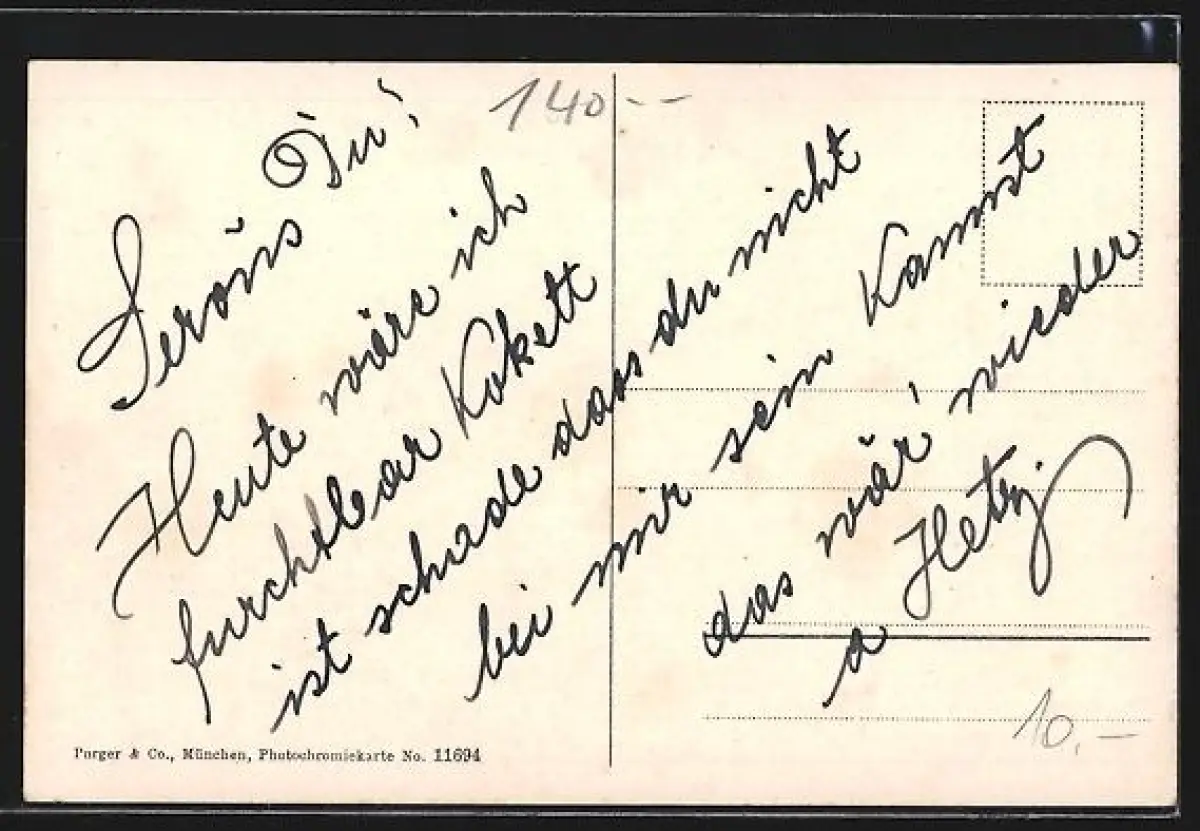 140.--
Servus Du!
Heute wäre ich
furchtbar Kokett
ist schade dass du nicht
bei mir sein Kannst
das wär' wieder
a Hetz
10,-
Purger & Co., München, Photochromiekarte No. 11694